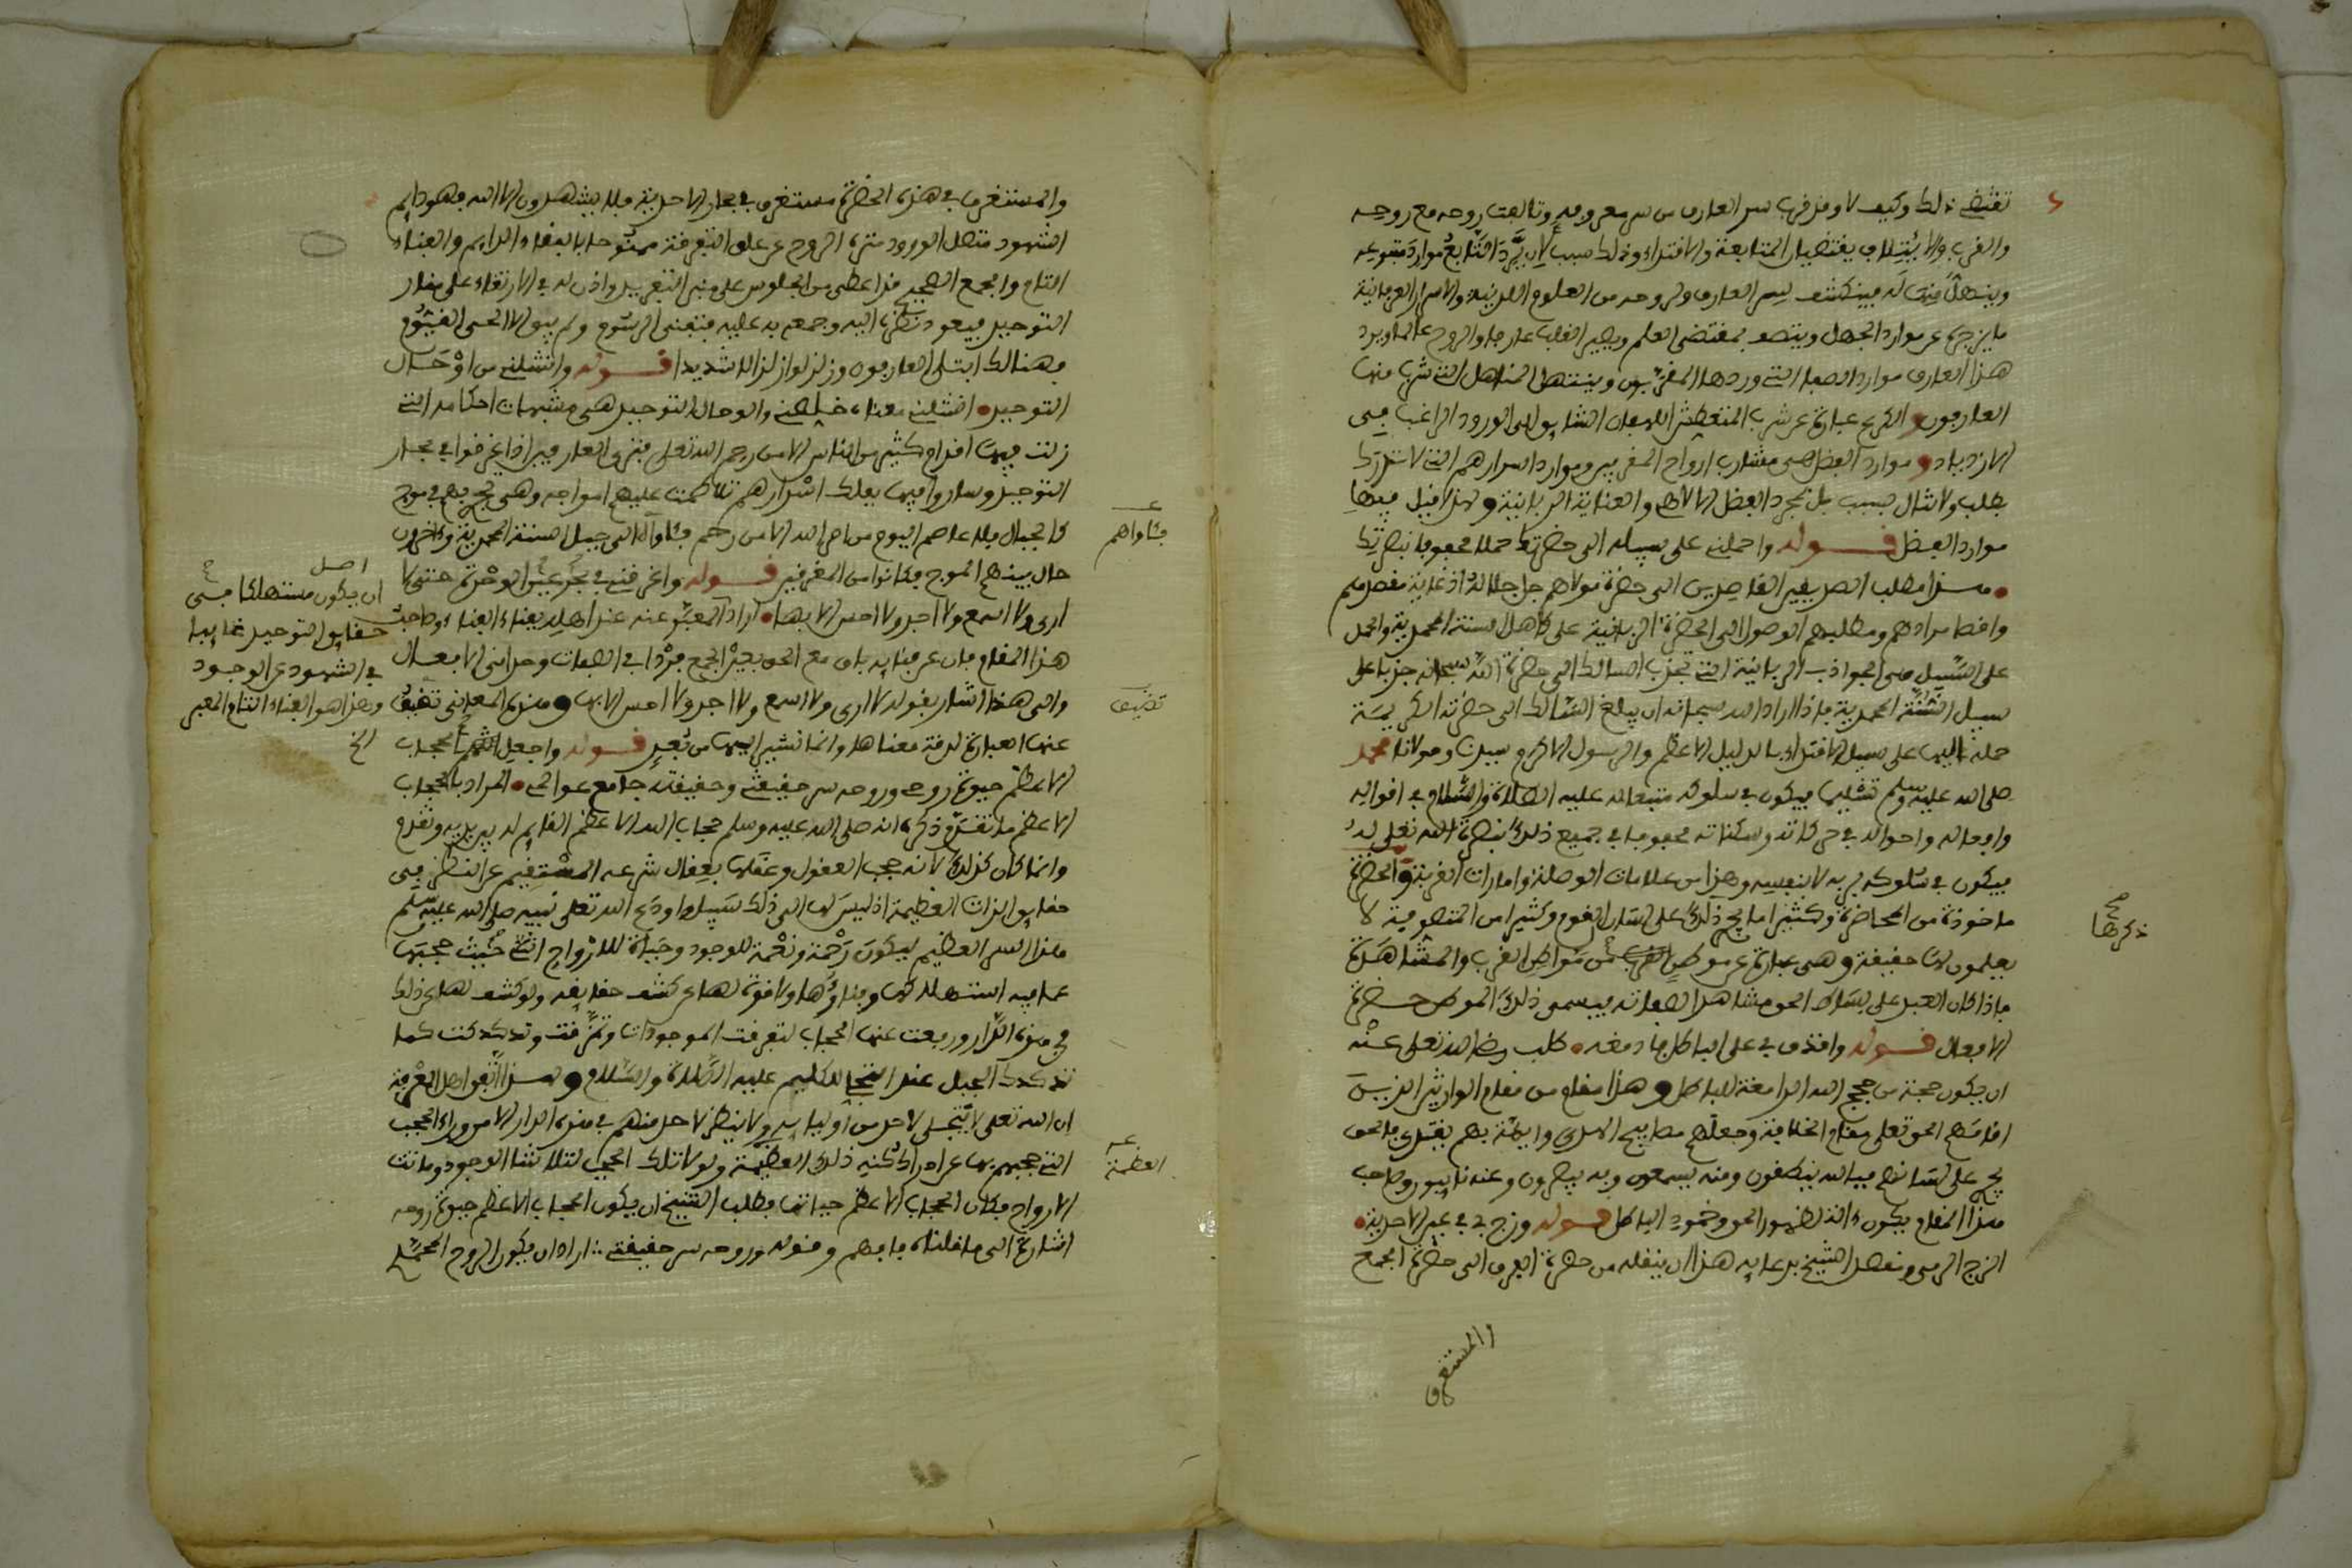 تقتضي ذلك وكيف لا وقد قرب سر العارف من سر معروفه وتالفت روحه مع روحه
والقرب والائتلاف يقتضيان المتابعة والاقتداء وذلك سبب لان يرد التابع موارد متبوعه
وينهل من مناهله فينكشف لسر العارف ولروحه من العلوم اللدنية والاسرار العرفانية
ما يزجره عن موارد الجهل ويتصف بمقتضى العلم ويصير القلب عارفا والروح عالما ويرد
هذا العارف موارد الصفا التي وردها المقربون وينتهل المناهل التي شرب منها
العارفون والكرع عبارة عن شرب المتعطش اللهفان الشايق الى الورود الراغب في
الازدياد وموارد الفضل هي مشارب ارواح المقربين وموارد اسرارهم التي لا تدرك
بطلب ولا تنال بسبب بل بمجرد الفضل الالاهي والعناية الربانية ولهذا قيل فيها
موارد الفضل قوله واحملني على سبيله الى حضرتك حملا محفوفا بنصرتك
هذا مطلب الصديقين القاصدين الى حضرة مولاهم جل جلاله اذ غاية مقصدهم
واقصا مرادهم ومطلبهم الوصول الى الحضرة الربانية على كاهل السنة المحمدية والحمل
على السبيل هي الجواذب الربانية التي تجذب السالك الى حضرة الله سبحانه جذبا على
سبيل السنة المحمدية فاذا اراد الله سبحانه ان يبلغ السالك الى حضرته الكريمة
حمله اليها على سبيل الاقتداء بالدليل الاعظم والرسول الاكرم سيدنا ومولانا محمد
صلى الله عليه وسلم تسليما فيكون في سلوكه متبعا له عليه الصلاة والسلام في اقواله
وافعاله واحواله في حركاته وسكناته محفوفا في جميع ذلك بنصرة الله تعلى له
فيكون في سلوكه بربه لا بنفسه وهذا من علامات الوصلة وامارات القربة والحضرة
ماخوذة من المحاضرة وكثيرا ما يجري ذلك على لسان القوم وكثير من المتصوفة لا
يعلمون لها حقيقة وهي عبارة عن موطن من مواطن القرب والمشاهدة
فاذا كان العبد على بساط الحق مشاهدا لصفاته فيسمى ذلك الموطن حضرة
الافعال قوله واقذف بي على الباطل فادمغه طلب رضي الله تعلى عنه
ان يكون حجة من حجج الله الدامغة للباطل وهذا مقام من مقام الوارثين الذين
اقامهم الحق تعلى مقام الخلافة وجعلهم مصابيح الهدى وايمة بهم يقتدى فالحق
يجري على لسانهم فبالله ينطقون ومنه يسمعون وبه يبصرون وعنه نايبون وصاحب
هذا المقام يكون ءالة لظهور الحق وخمود الباطل قوله وزج بي في بحار الاحدية
الزج الرمي ومقصد الشيخ بدعايه هذا ان ينقله من حضرة الفرق الى حضرة الجمع
والمستغرق
ذكرها
صح
والمستغرق في هذه الحضرة مستغرق في بحار الاحدية فلا يشهد دون الا الله فهو دايم
الشهود متصل الورود منزه الروح عن علل التفرقة ممنوحا بالبقاء الدايم والفناء
التام والجمع الصحيح قد اعطي من الجلوس على منبر التفريد واذن له في الارتقاء على منار
التوحيد فيعود نظره اليه وجمعه به عليه فتفنى الرسوم ولم يبق الا الحي القيوم
وهنالك ابتلي العارفون وزلزلوا زلزالا شديدا قوله وانشلني من اوحال
التوحيد انشلني معناه خلصني والوحال التوحيد هي مشبهات احكامه التي
زلت فيها اقدام كثير من الناس الا من رحم الله تعلى فترى العارفين اذا غرقوا في بحار
التوحيد وساروا فيها بفلك اسرارهم تلاطمت عليهم امواجه وهي تجري بهم في موج
كالجبال فلا عاصم اليوم من امر الله الا من رحم فئاواه الى جبل السنة المحمدية وءاخرون
حال بينهم الموج فكانوا من المغرقين قوله واغرقني في بحر عين الوحدة حتى لا
ارى ولا اسمع ولا اجد ولا احس الا بها اراد المعبر عنه عند اهله بفناء الفناء وصاحب
هذا المقام فان عن فنايه باق مع الحق بعين الجمع فردا في الصفات وحداني الافعال
والى هذا اشار بقوله لا ارى ولا اسمع ولا اجد ولا احس الا بها وهذه المعاني تضيق
عنها العبارة لدقة معناها وانما نشير اليها من بعد قوله واجعل اللهم الحجاب
الاعظم حيوة روحي وروحه سر حقيقتي وحقيقته جامع عوالمي المراد بالحجاب
الاعظم ما تقدم ذكره انه صلى الله عليه وسلم حجاب الله الاعظم القايم له بين يديه وتقدم
وانما كان كذلك لانه حجب العقول وعقلها بعقال شرعه المستقيم عن النظر في
حقايق الذات العظيمة اذ ليس لها الى ذلك سبيل اودع الله تعلى نبيه صلى الله عليه وسلم
هذا السر العظيم ليكون رحمة ونعمة للوجود وحياة للارواح التي حييت بحجبها
عما فيه استهلاكها وفناؤها ولا قوة لها عن كشف حقايقه ولو كشف لها عن ذلك
في هذه الدار ورفعت عنها الحجاب لتفرقت الموجودات وتمزقت وتدكدكت كما
تدكدك الجبل عند التجلي للكليم عليه الصلاة والسلام ولهذا اتفق اهل المعرفة
ان الله تعلى لا يتجلى لاحد من اوليايه ولا ينظر لاحد منهم في هذه الدار الا من وراء الحجب
التي حجبهم بها عن ادراك كنه ذلك العظيمة ولولا تلك الحجب لتلاشا الوجود وماتت
الارواح فكان الحجاب الاعظم حياتها فطلب الشيخ ان يكون الحجاب الاعظم حيوة روحه
اشارة الى ما قلناه فافهم وقوله وروحه سر حقيقتي اراد ان يكون الروح المحمدي
فئاواهم
تضيق
العظمة
اصل
ان يكون مستهلكا في
حقايق التوحيد غايبا
في الشهود عن الوجود
وهذا هو الفناء التام المعبر
الخ